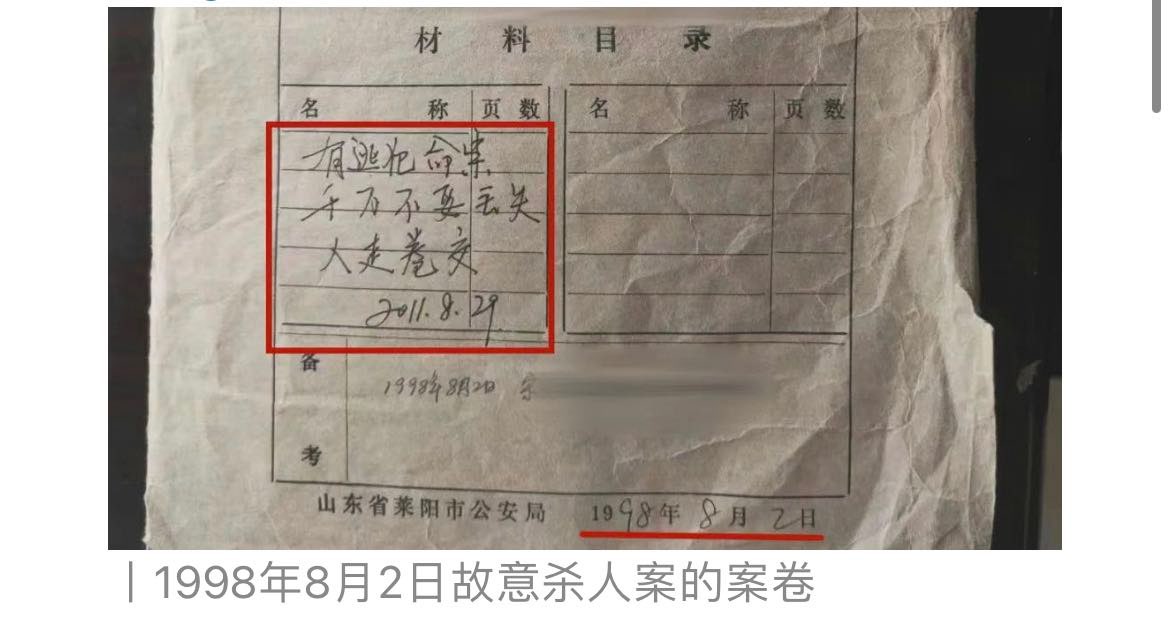 材料目录
名称 页数 名称 页数
有逃犯命案
千万不要丢失
人走卷交
2011.8.29
备考
1998年8月2日
山东省莱阳市公安局 1998年8月2日
｜1998年8月2日故意杀人案的案卷